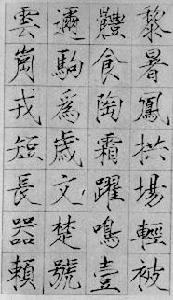 黎暑鳳拱場輕被
體食陶霜躍鳴壹
邇駒爲歲文楚號
雲崗戎短長器賴